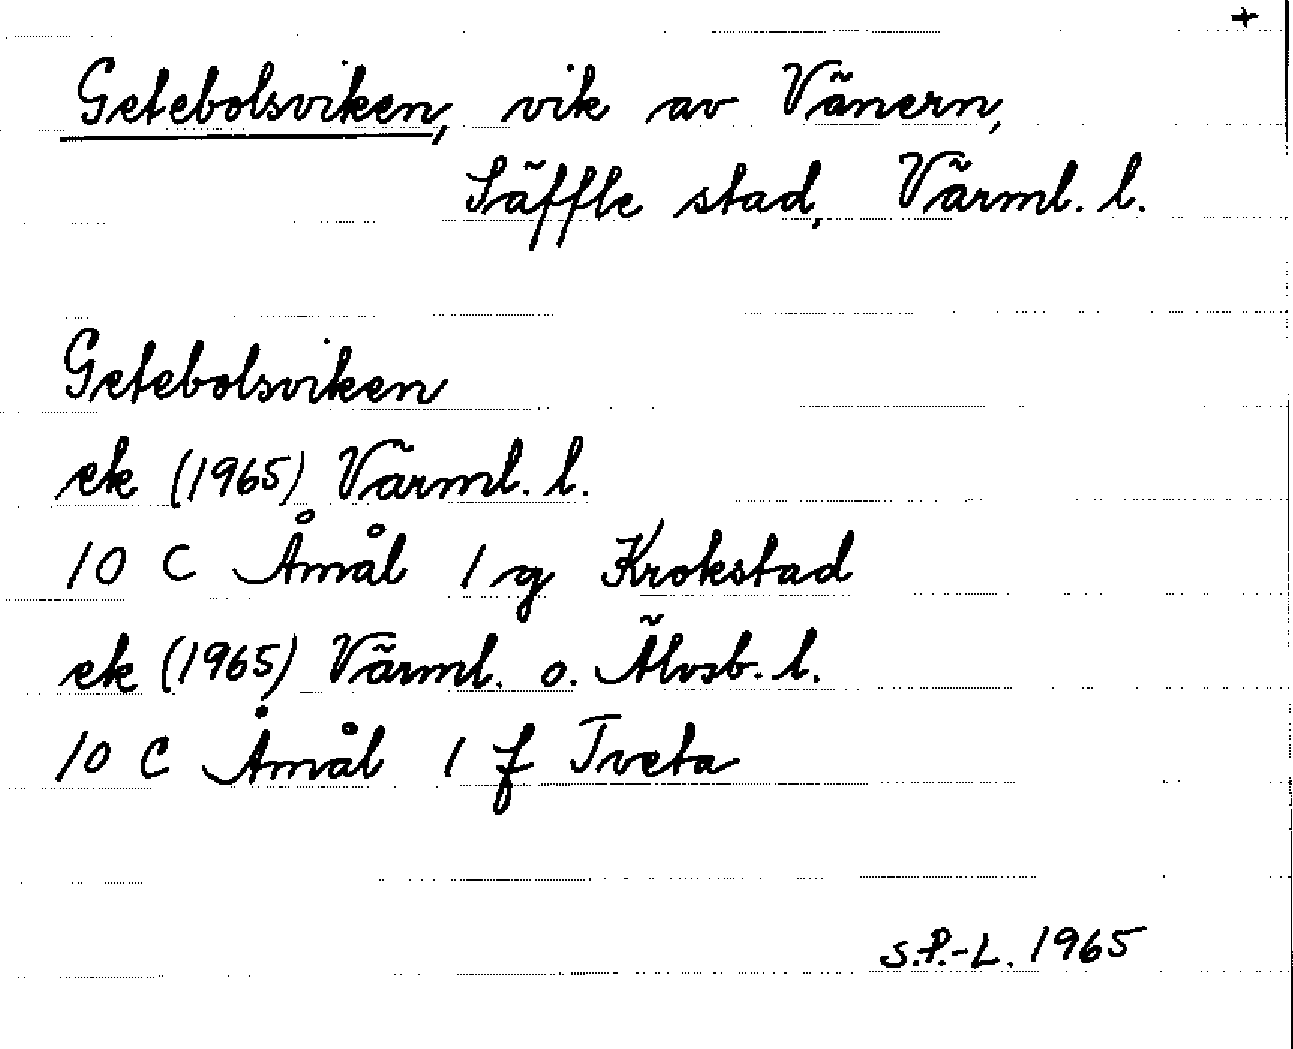 +
Getebolsviken, vik av Vänern,
Säffle stad, Värml. l.
Getebolsviken
ek (1965) Värml. l.
10 C Åmål 1 g Krokstad
ek (1965) Värml. o. Älvsb. l.
10 C Åmål 1 f Tveta
S.P.-L. 1965